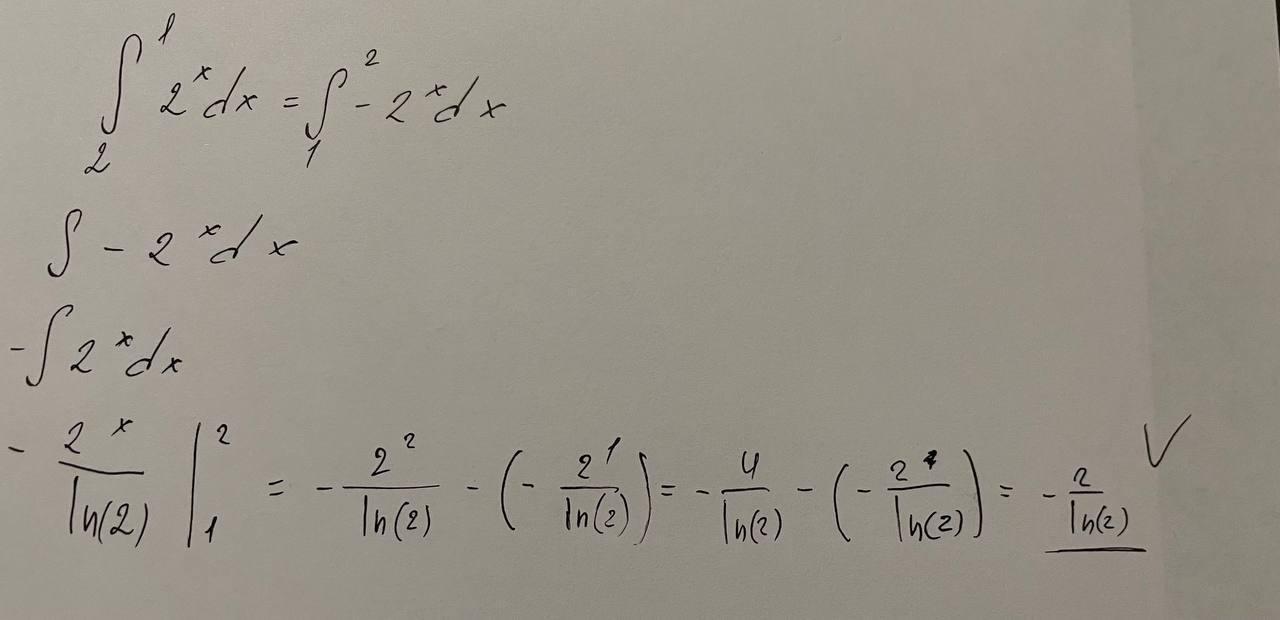 ∫₂¹ 2ˣ dx = ∫₁² - 2ˣ dx
∫ - 2ˣ dx
- ∫ 2ˣ dx
- 2ˣ/ln(2) |₁² = - 2²/ln(2) - (- 2¹/ln(2)) = - 4/ln(2) - (- 2/ln(2)) = - 2/ln(2) ✓